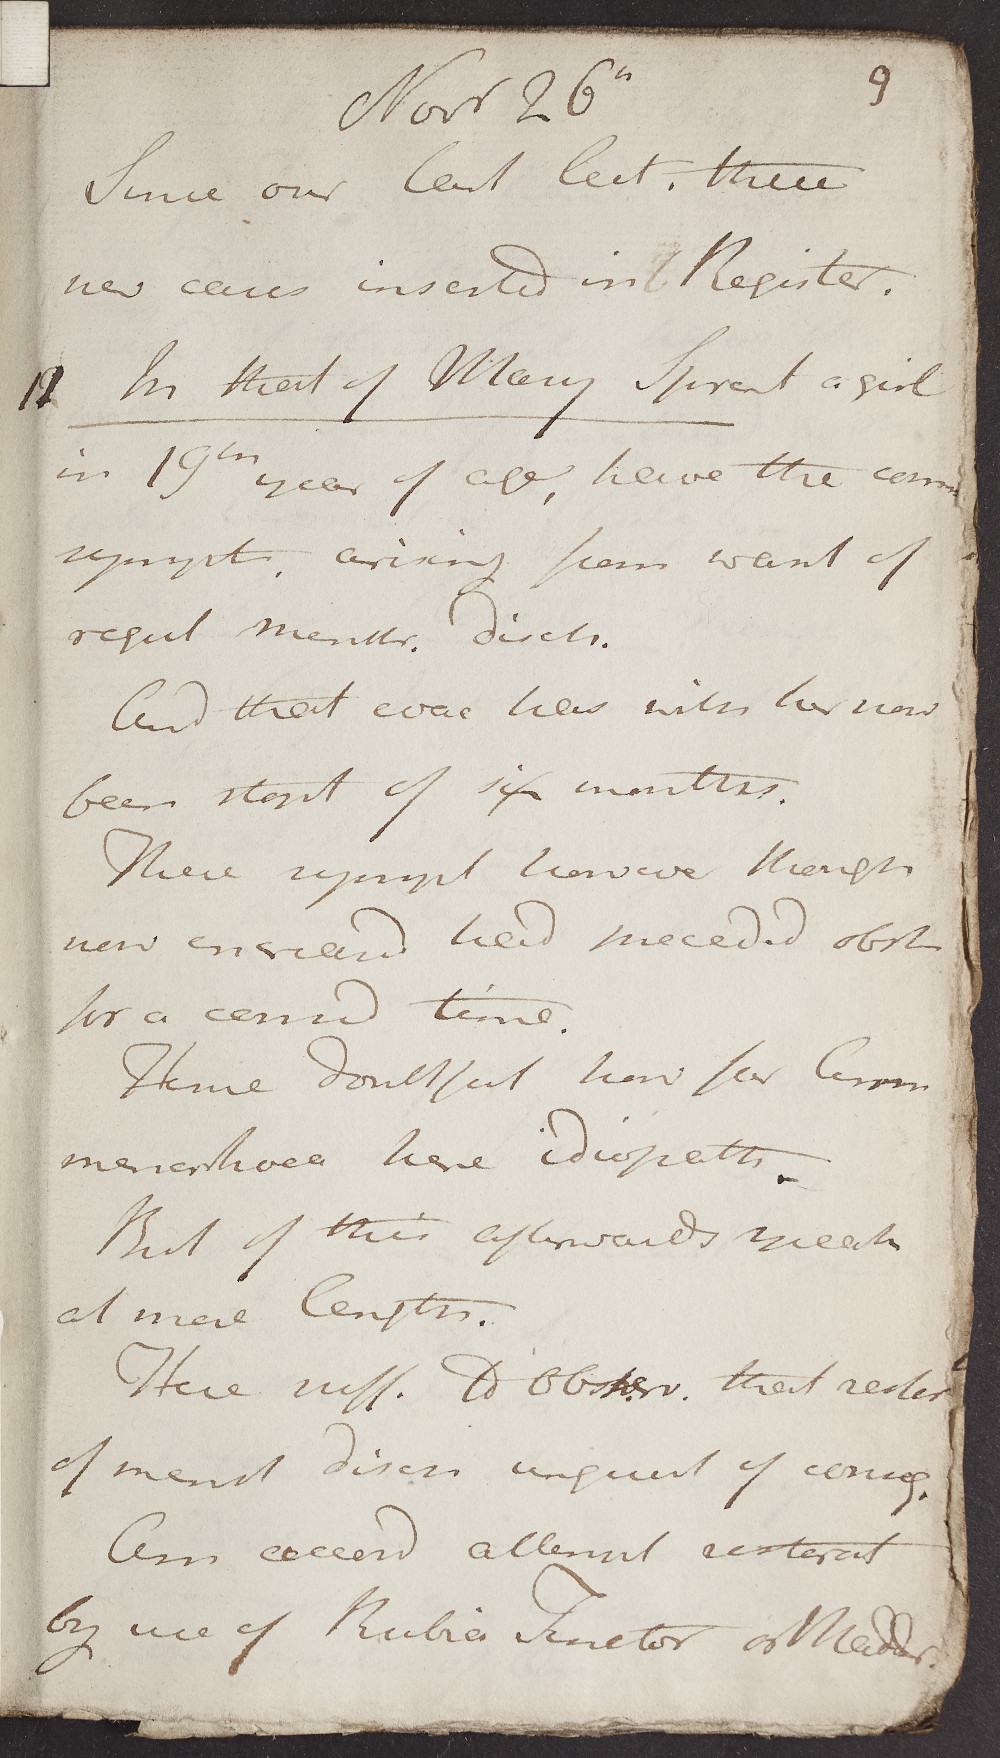 9
Novr 26th
Since our last lect. three
new cases inserted in Register.
12 In that of Mary Sprent a girl
in 19th year of age, have the comm
sympt. arising from want of
regul month. disch.
And that evac has with her now
been stopt of six months.
These sympt however though
now increasd had preceded obst
for a considd time.
Hence doubtful how far Amm
menorrhoea here idiopath.
But of this afterwards speak
at more length.
Here suff. to observ. that restor
of menst disch unquest of conseq.
Am accord attempt restorat
by use of Rubia Tinctor or Madder.